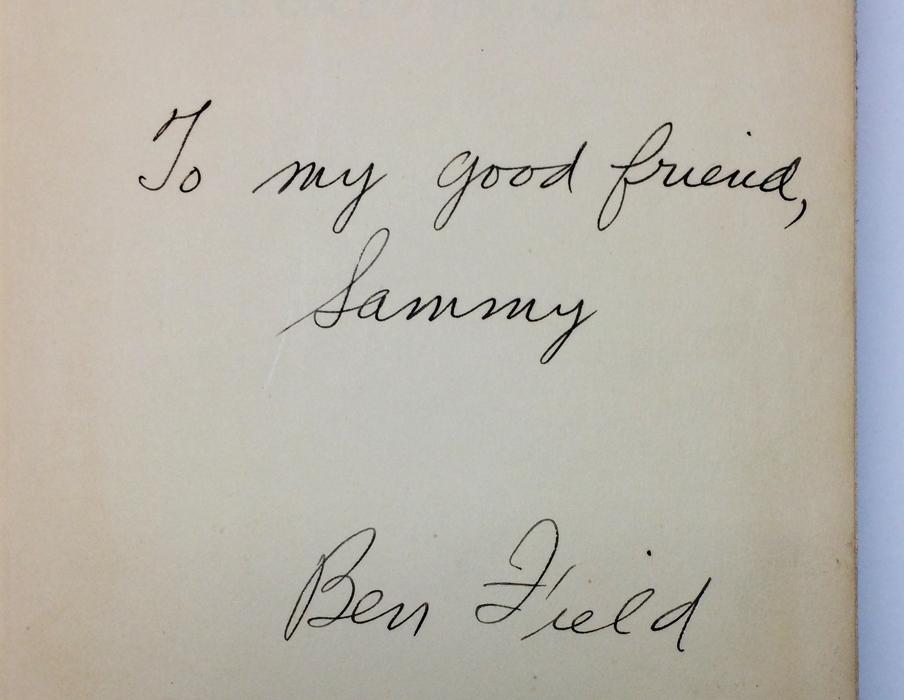 To my good friend,
Sammy
Ben Field